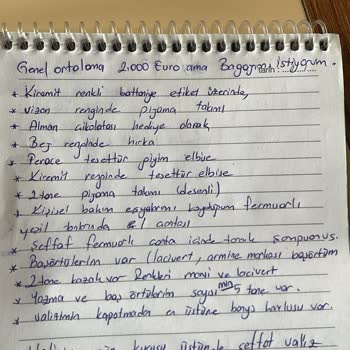 Genel ortalama 2.000 Euro ama Bagajımı istiyorum.
tarih:
* Kiremit renkli battaniye etiket üzerinde,
* Vizon renginde pijama takımı
* Alman çikolatası hediye olarak,
* Bej renginde hırka
* Ferace tesettür giyim elbise
* Kiremit renginde tesettür elbise
* 2 tane pijama takımı (desenli)
* Kişisel bakım eşyalarımı koyduğum fermuarlı
yeşil el çantası
* Şeffaf fermuarlı çanta içinde tarak şampuan vs.
* Başörtülerim var (lacivert, armine markası başörtüm
* 2 tane kazak var Renkleri mavi ve lacivert
* Yazma ve baş örtülerim sayısı min 5 tane var.
* Valizimin kapatmadan en üstüne banyo havlusu var.
üstünde şeffaf valiz